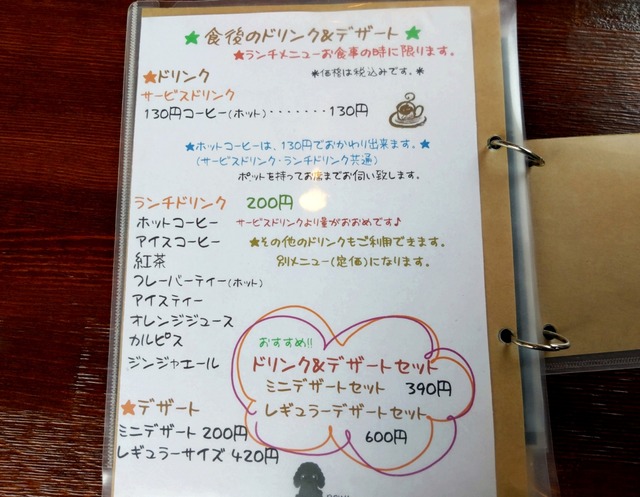 ★食後のドリンク&デザート★
★ランチメニューお食事の時に限ります。
★ドリンク
*価格は税込みです。*
サービスドリンク
130円コーヒー(ホット)・・・・・・・130円
★ホットコーヒーは、130円でおかわり出来ます。★
(サービスドリンク・ランチドリンク共通)
ポットを持ってお席までお伺い致します。
ランチドリンク 200円
ホットコーヒー サービスドリンクより量がおおめです♪
アイスコーヒー ★その他のドリンクもご利用できます。
紅茶 別メニュー(定価)になります。
フレーバーティー(ホット)
アイスティー
オレンジジュース
カルピス
ジンジャエール
おすすめ!!
ドリンク&デザートセット
ミニデザートセット 390円
レギュラーデザートセット
600円
★デザート
ミニデザート 200円
レギュラーサイズ 420円